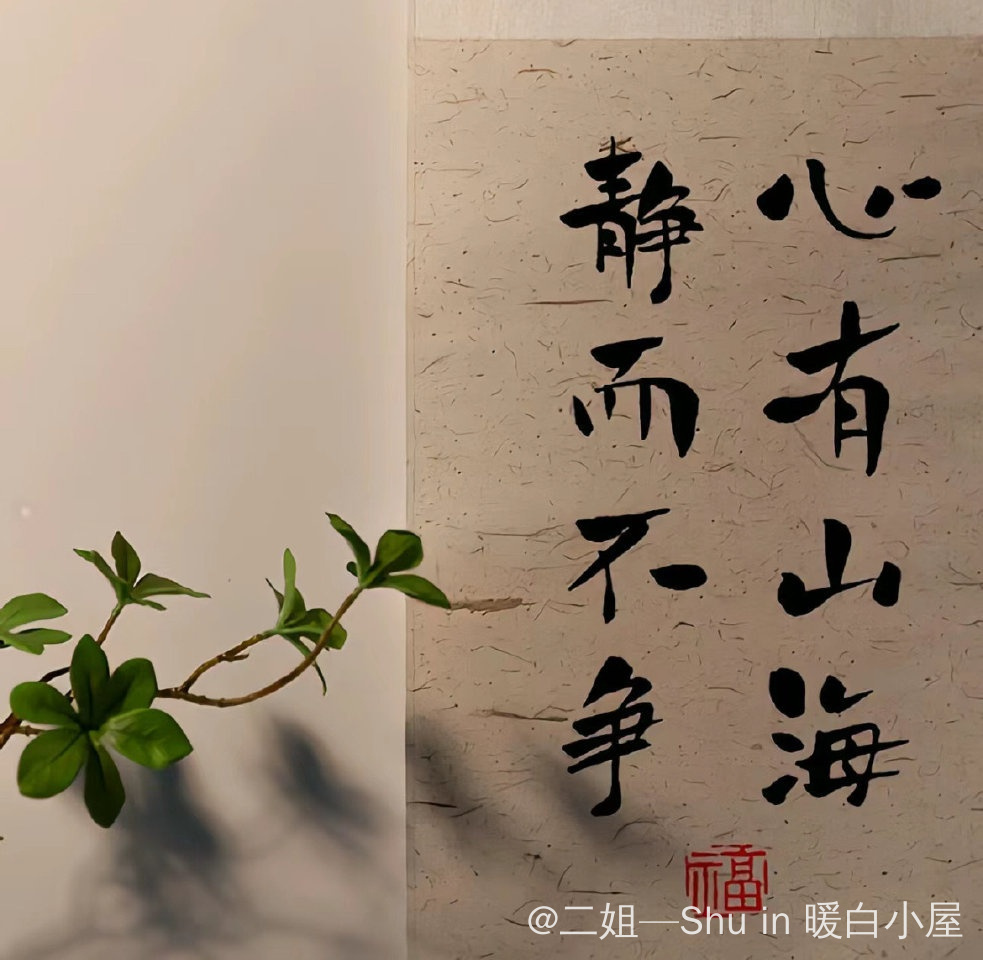 心有山海
静而不争
福
@二姐—Shu in 暖白小屋